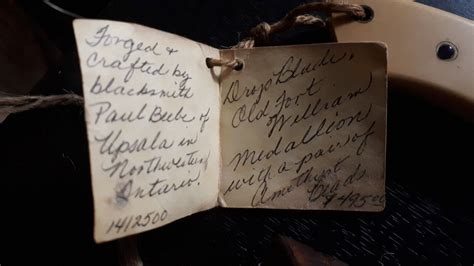 Forged &
crafted by
blacksmith
Paul Beebe of
Upsala in
Northwestern
Ontario.
1412500
Drop Blade,
Old Fort
William
Medallion
with a pair of
Amethyst
Beads
$495.00